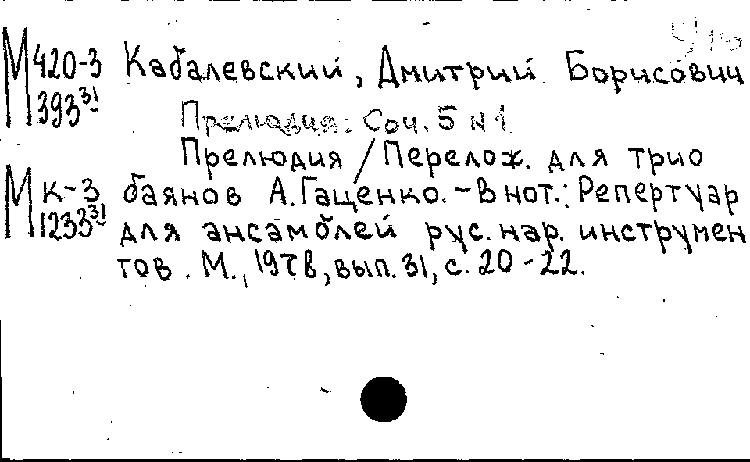 М 420-3 Кабалевский, Дмитрий Борисович
393 31
Прелюдия: Соч. 5 N 1
Прелюдия / Перелож. для трио
М К-3 баянов А. Гаценко. - В нот.: Репертуар
1233 31 для ансамблей рус. нар. инструмен
тов. М., 1978, вып. 31, с. 20-22.